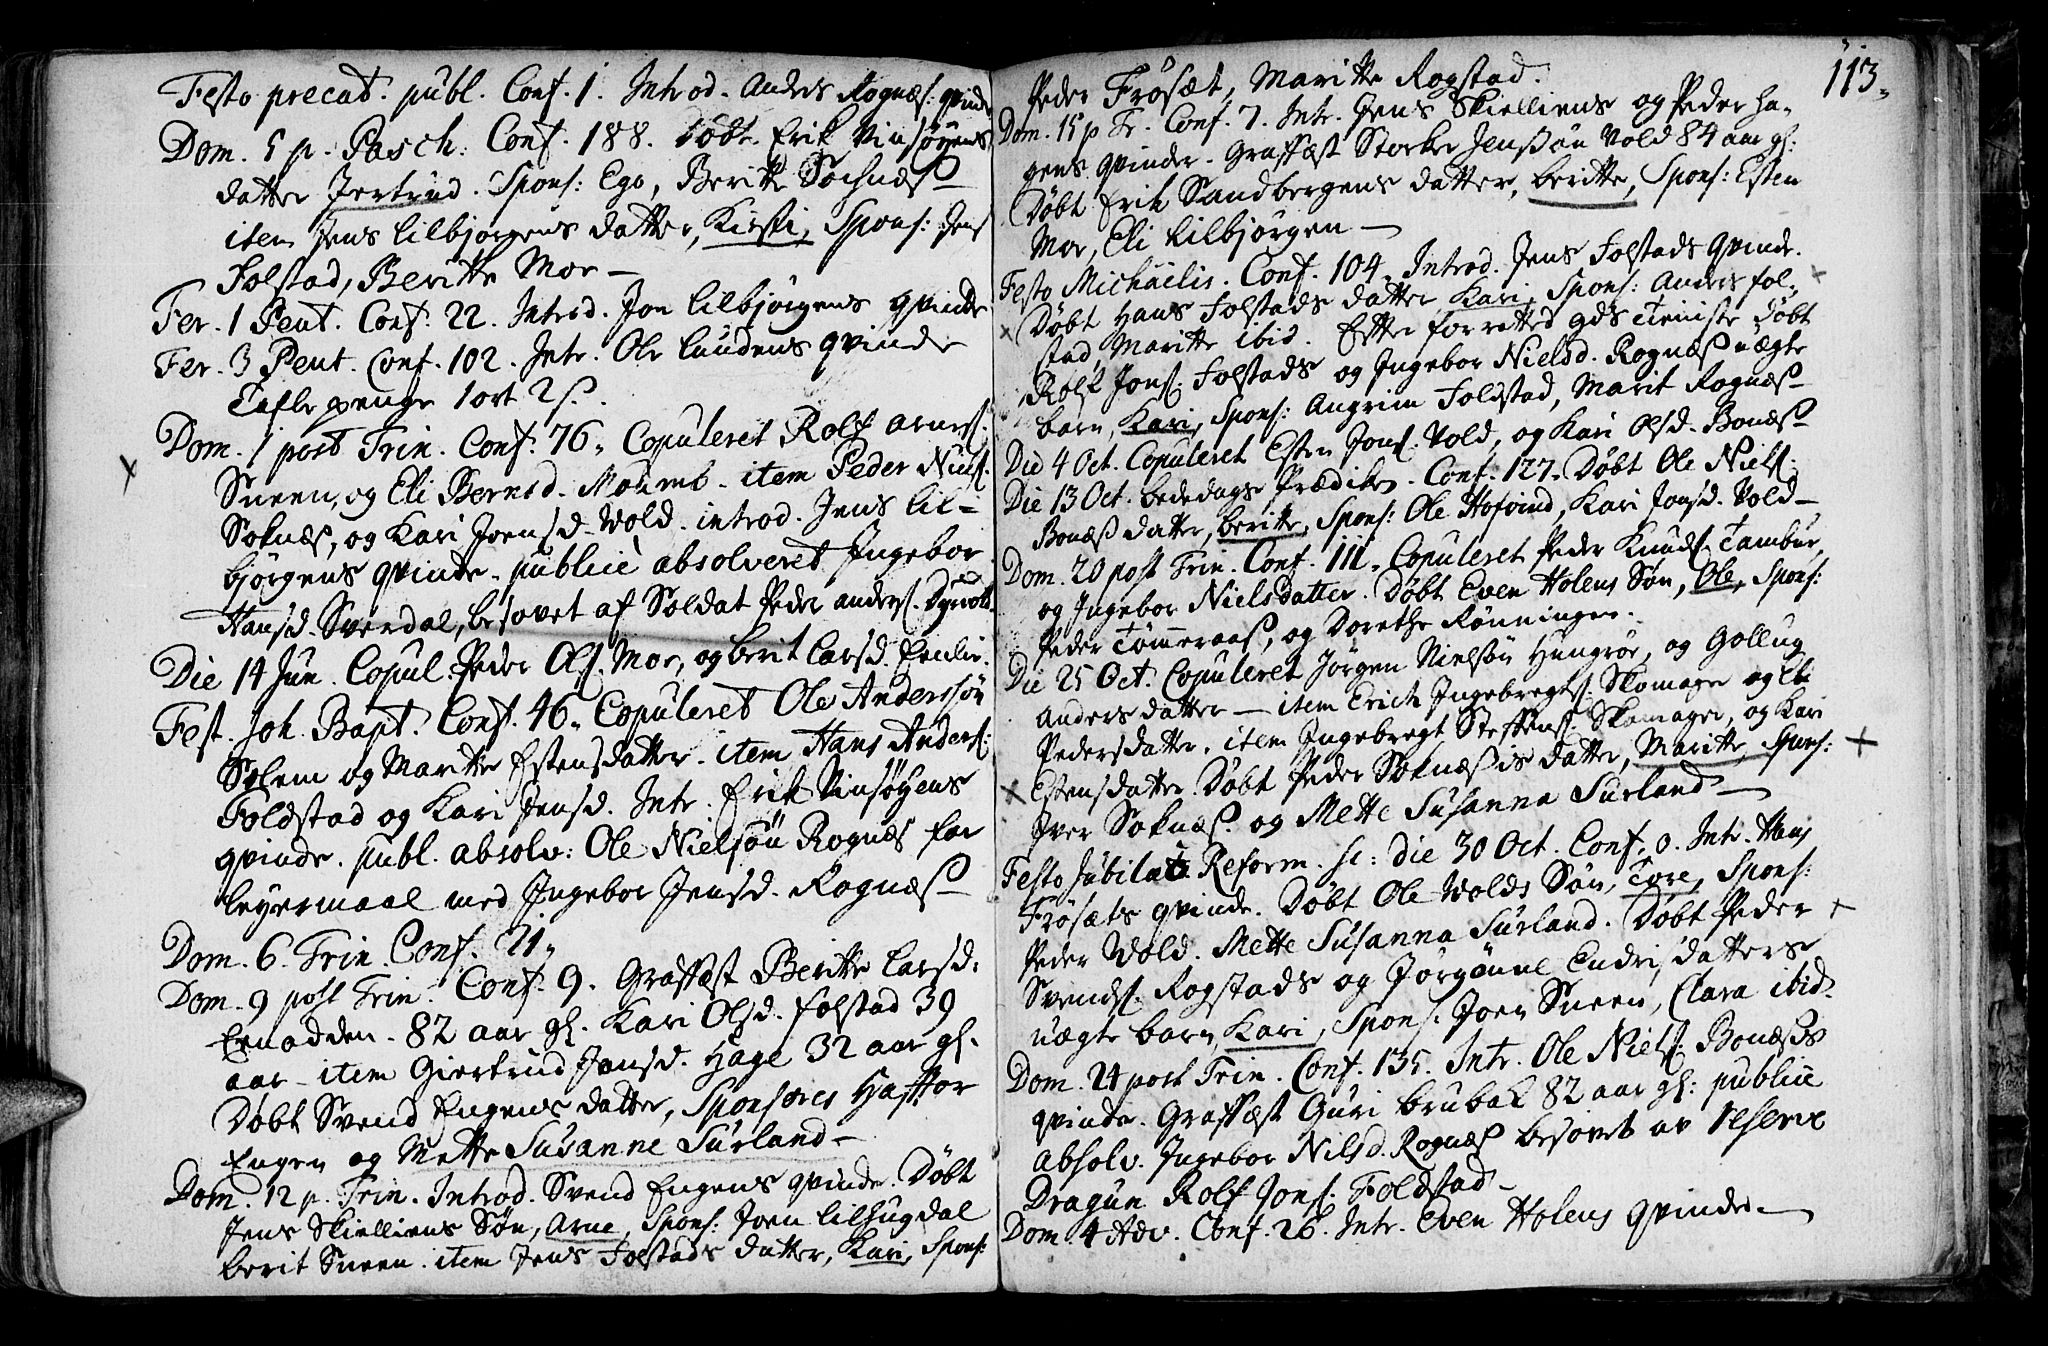 Festo precat. publ. Conf. 1. Introd. Anders Rognæs: qvinde
Dom. 5 p. Pasch: Conf. 188. Döbt Erik Vinsøyens
datter Jertrud. Spons: Ego, Beritte Socknæs
item Jens Lilbjørgens datter, Kirsti, Spons: Jens
Folstad, Beritte Moe
Fer. 1 Pent. Conf. 22. Introd. Jon Lilbjørgens qvinde
Fer. 3 Pent. Conf. 102. Intr. Ole Lundens qvinde
Tafle penge 1 ort 2 s.
Dom. 1 post Trin. Conf. 76. Copuleret Rolf Arnes:
Sneen, og Eli Berntsd. item Peder Niels:
Soknæs, og Kari Joensd. Wold. introd. Jens Lil-
bjørgens qvinde. publicè absolveret Ingebor
Hansd. Sverdal, besovet af Soldat Peder Anders:
Die 14 Jun. Copul. Peder Ols: Moe, og berit Larsd.
Fest. Joh. Bapt. Conf. 46. Copuleret Ole Anderssøn
Solem og Maritte Estensdatter. item Hans Anders:
Foldstad og Kari Jensd. Intr. Erik Vinsøyens
qvinde. publ. absolv: Ole Nielsøn Rognæs for
leyermaal med Ingebor Jensd. Rognæs
Dom. 6. Trin. Conf. 71.
Dom. 9 post Trin. Conf. 9. Graffæst Beritte Larsd:
Enodden. 82 aar gl. Kari Olsd. Folstad 39
aar – item Giertrud Jonsd. Hage 32 aar gl.
Døbt Svend Engens datter, Sponsores Haftor
Engen og Mette Susanne Surland
Dom. 12 p. Trin. Introd. Svend Engens qvinde. Døbt
Jens Skielliens Søn, Arne, Spons: Joen Lilhugdal
berit Sneen. item Jens Folstads datter, Kari, Spons:
113.
Peder Frøsæt, Maritte Rogstad.
Dom. 15 p Tr. Conf. 7. Intr. Jens Skielliens og Peder Ha-
gens qvinder. Graffæst Storker Jensøn Vold 84 aar gl:
Døbt Erik Sandbergens datter, beritte, Spons: Esten
Moe, Eli Lilbjørgen
Festo Michaelis. Conf. 104. Introd. Jens Folstads qvinde.
Døbt Hans Folstads datter Kari, Spons: Anders Fol-
stad, Maritte ibid. Efter forretted gds tieniste døbt
Rolf Jons: Folstads og Ingebor Nielsd. Rognæs uægte
barn, Kari, Spons: Angrim Foldstad, Marit Rognæs
Die 4 Oct. Copuleret Esten Jons: Vold, og Kari Olsd. Bonæs
Die 13 Oct. bededags Prædiken. Conf. 127. Døbt Ole Niels:
Bonæs datter, beritte, Spons: Ole Hofvind, Kari Jonsd. Vold
Dom. 20 post Trin. Conf. 111. Copuleret Peder Knuds: Tambur,
og Ingebor Nielsdatter. Døbt Even Holens Søn, Ole, Spons:
Peder Tømmeraas, og Dorethe Rønningen.
Die 25 Oct. Copuleret Jørgen Nielsøn Hungrøe, og Gollug
Andersdatter – item Erich Ingebregts: Skomager og Eli
Pedersdatter. item Ingebregt Steffens: Skomager, og Kari
Estensdatter. Døbt Peder Soknæsis datter, Maritte, Spons:
Iver Soknæs. og Mette Susanna Surland
Festo Jubilæi Reform. sc: die 30 Oct. Conf. 0. Intr. Hans
Frøsæts qvinde. Døbt Ole Wolds Søn, Tore, Spons:
Peder Wold. Mette Susanna Surland. Døbt Peder
Svends: Rogstads og Jørgønne Endri datters
uægte barn, Kari, Spons: Joen Sneen, Clara ibid.
Dom. 24 post Trin. Conf. 135. Intr. Ole Niels: Bonæses
qvinde. Graffæst Guri Brubak 82 aar gl: publice
absolv. Ingebor Nilsd. Rognæs besovet av reserve
Dragun Rolf Jons: Foldstad
Dom 4 Adv. Conf. 26. Intr. Even Holens qvinde